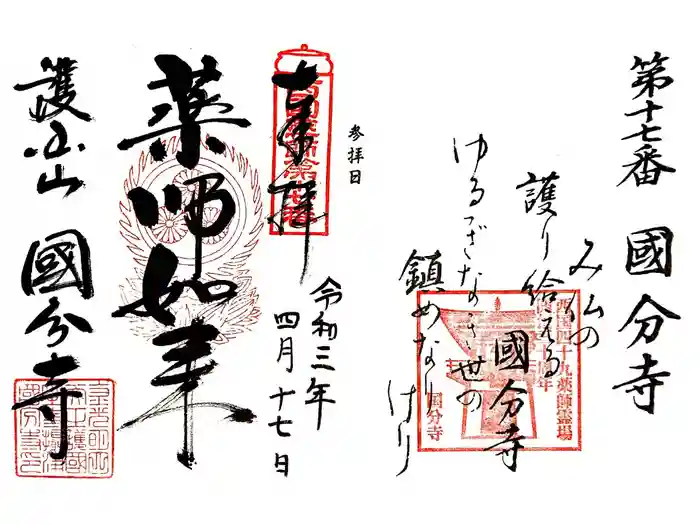 第十七番 國分寺
み仏の
護り給える
國分寺
ゆるぎなき世の
鎮めなりけり
西国四十九薬師霊場
国分寺
参拝日
奉拝
令和三年
四月十七日
薬師如来
護国山 國分寺